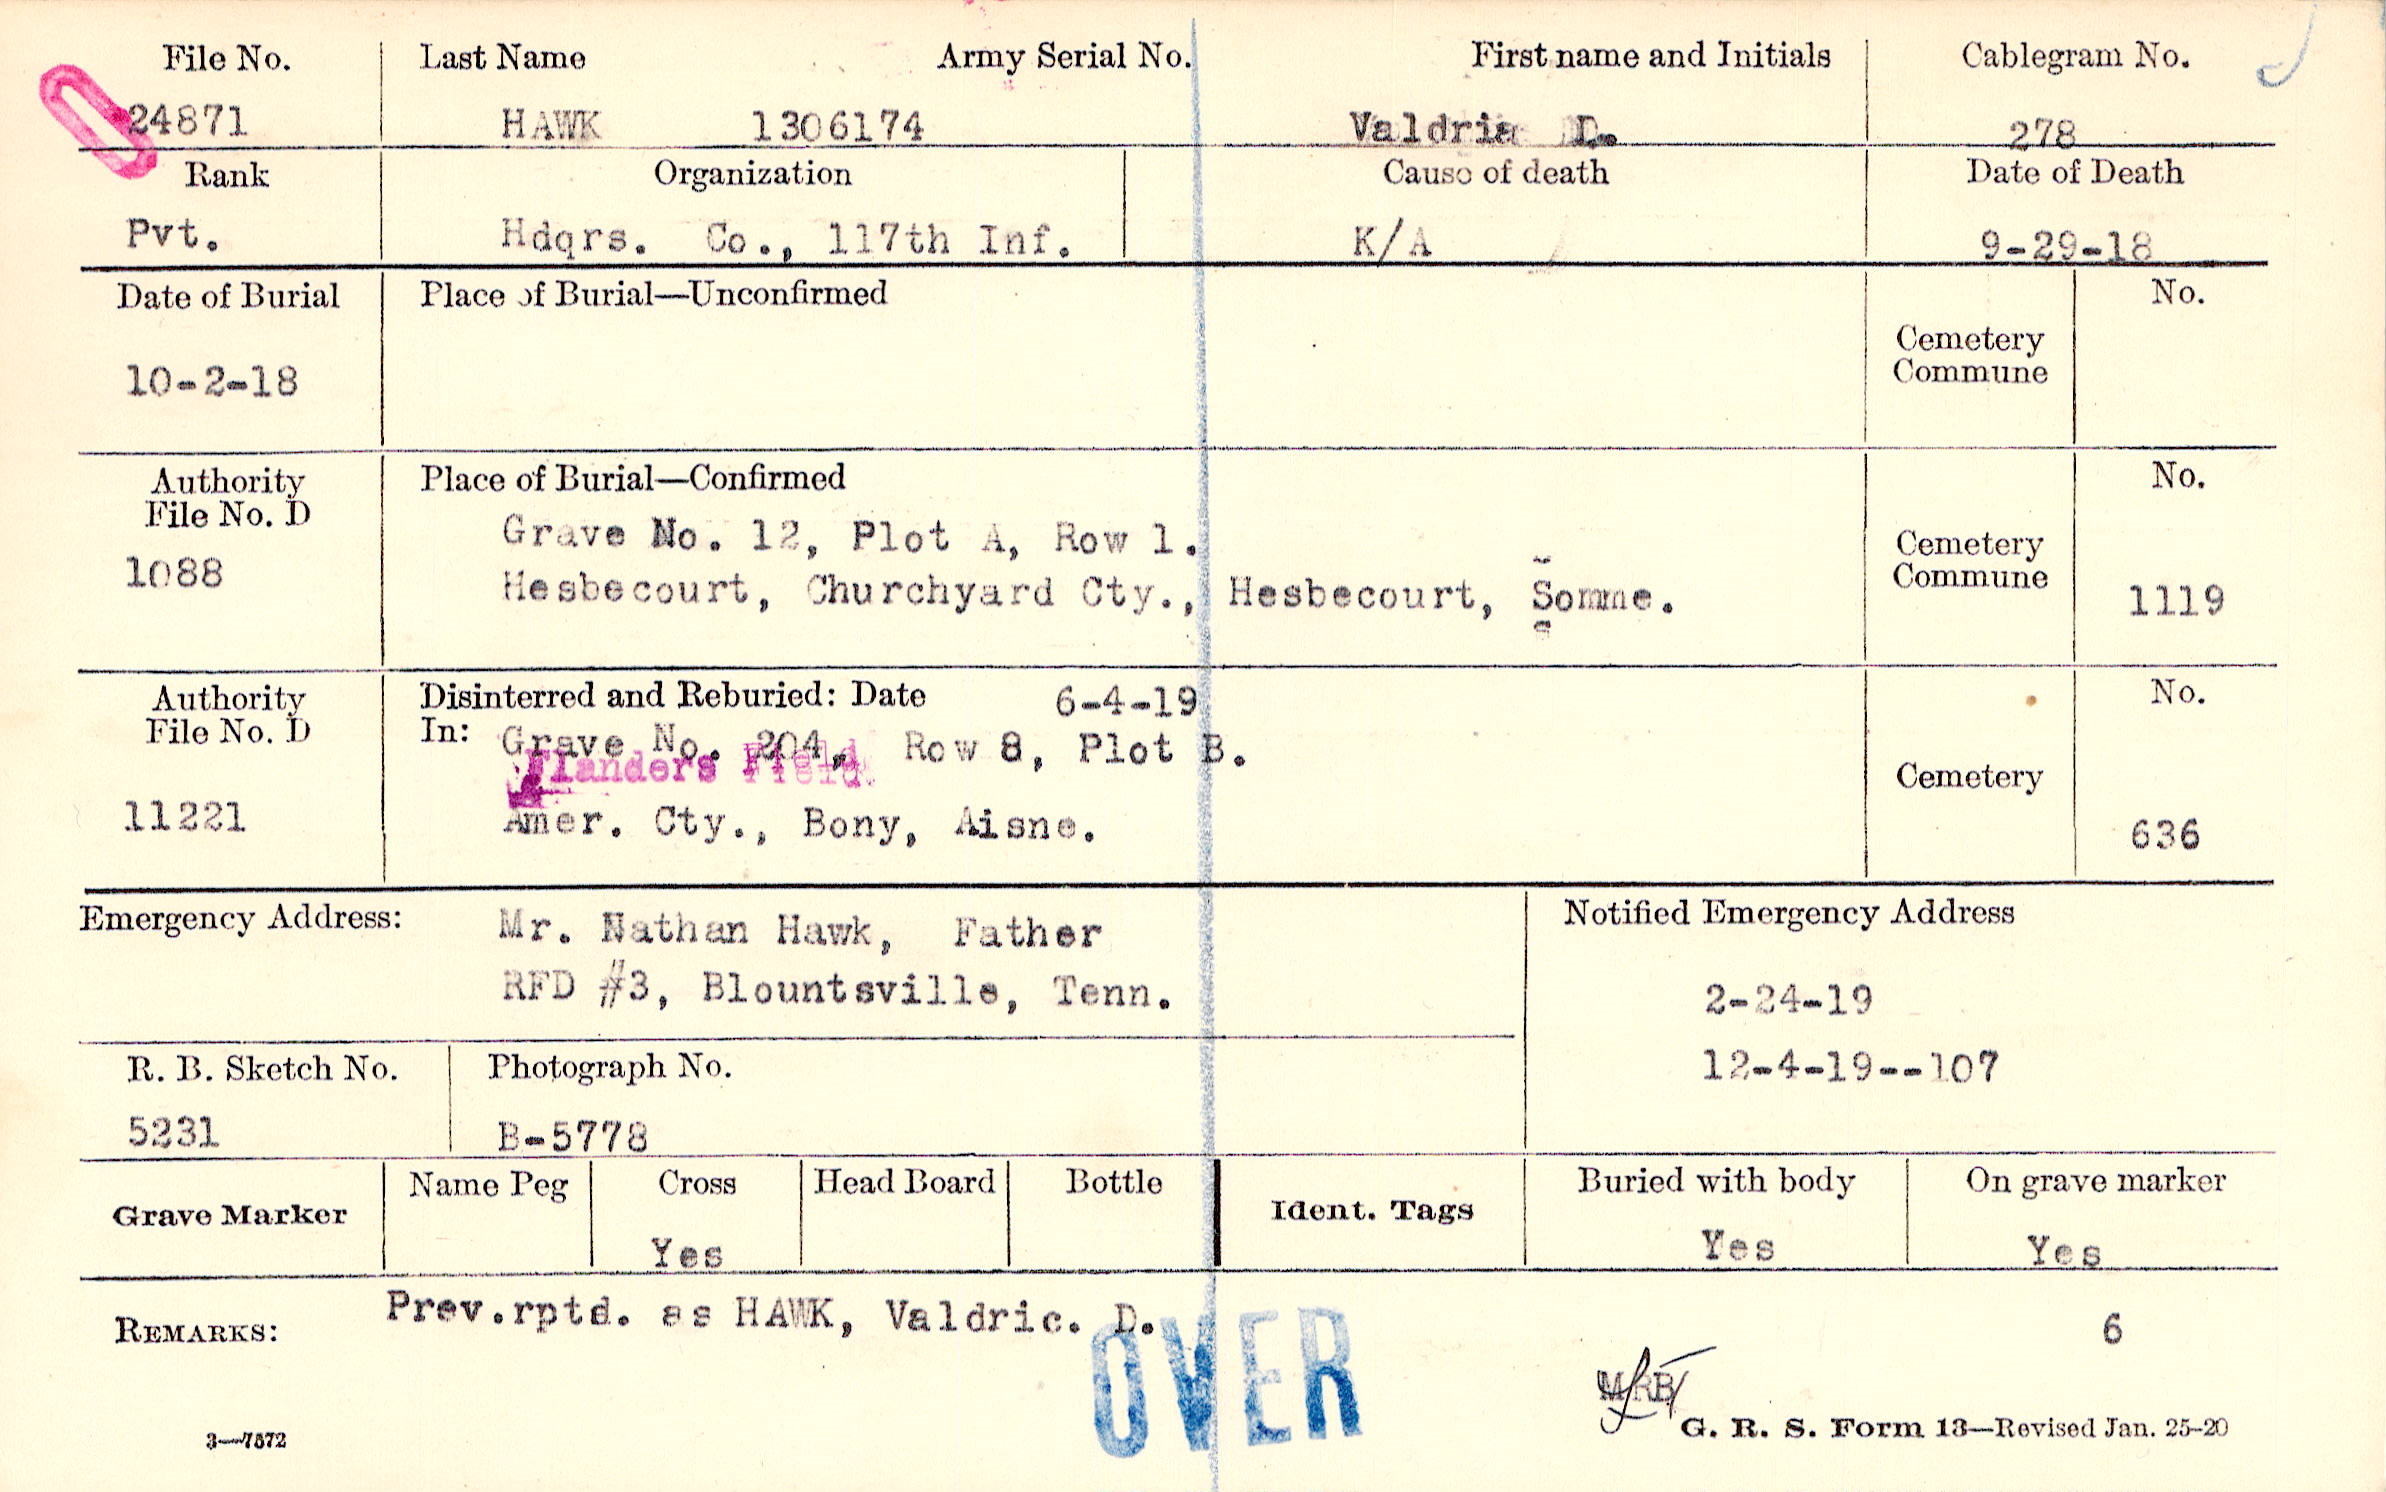 File No. Last Name Army Serial No. First name and Initials Cablegram No.
24871 HAWK 1306174 Valdria D. 278
Rank Organization Cause of death Date of Death
Pvt. Hdqrs. Co., 117th Inf. K/A 9-29-18
Date of Burial Place of Burial—Unconfirmed No.
Cemetery
Commune
10-2-18
Authority Place of Burial—Confirmed No.
File No. D
Grave No. 12, Plot A, Row 1.
Cemetery
Commune
1088
Hesbecourt, Churchyard Cty., Hesbecourt, Somme.
1119
Authority Disinterred and Reburied: Date 6-4-19 No.
File No. D In: Grave No. 204, Row 8, Plot B.
Flanders Field
Cemetery
11221 Amer. Cty., Bony, Aisne. 636
Emergency Address: Mr. Nathan Hawk, Father
RFD #3, Blountsville, Tenn.
Notified Emergency Address
2-24-19
12-4-19--107
R. B. Sketch No. Photograph No.
5231 B-5778
Grave Marker Name Peg Cross Head Board Bottle Ident. Tags Buried with body On grave marker
Yes Yes Yes
REMARKS: Prev.rptd. as HAWK, Valdric. D.
6
OVER
MRB
3—7572 G. R. S. Form 13—Revised Jan. 25-20